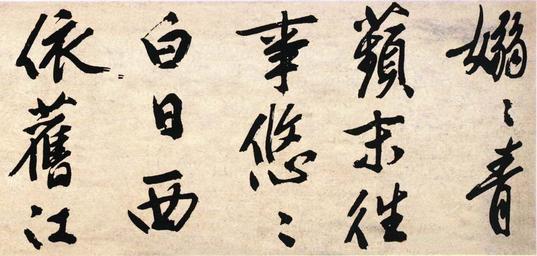 嫋〻青
蘋末往
事悠〻
白日西
依舊江